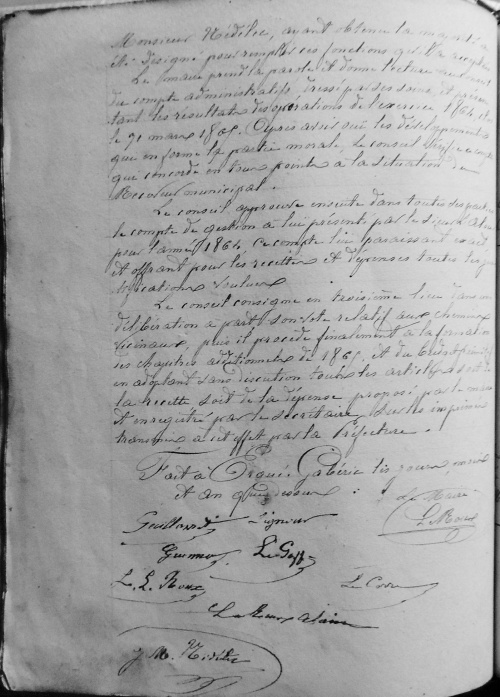 Monsieur Nédélec, ayant obtenu la majorité a
été désigné pour remplir ces fonctions qu'il a acceptées
Le maire prend la parole et donne lecture
du compte administratif, dressé par ses soins, et présen
tant les résultats des opérations de l'exercice 1864
le 31 mars 1865. Après avoir ouï les développements
que en forme la partie morale, le conseil
que concorde en tous points a la situation du
Receveur municipal.
Le conseil approuve ensuite dans toutes ses parties
le compte de gestion a lui présenté par le sieur
pour l'année 1864 ce compte lui paraissant exact
et offrant pour les recettes et dépenses toutes les
justifications voulues
Le conseil consigne en troisième lieu dans une
délibération a part son vote relatif aux chemins
vicinaux, puis il procède finalement a la formation
des chapitres additionnels de 1865, et du budget
en adoptant sans discution tous les articles soit de
la recette soit de la dépense proposé par le maire
et enregistré par le secrétaire, sur les imprimés
transmis a cet effet par la Préfecture.
Fait à Ergué-Gabéric les jours, mois
et an que dessus
Le Maire
Le Roux
L. L. Roux
Le Roux Alain
J. M. Nédélec